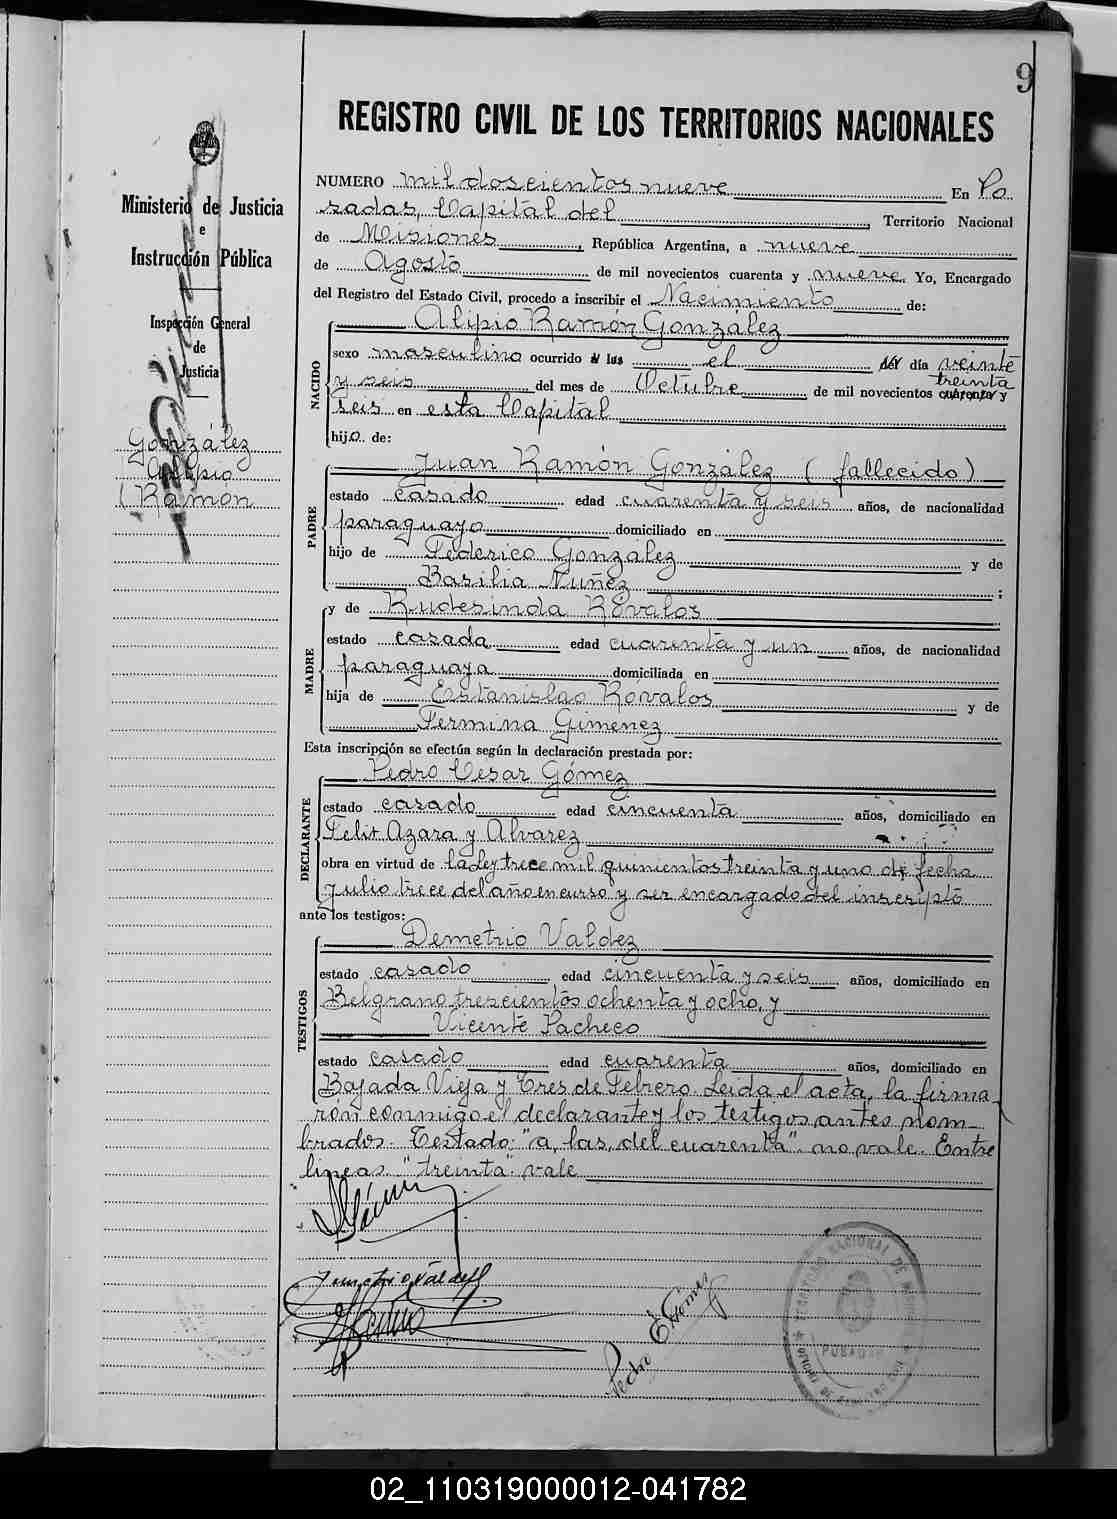 9
REGISTRO CIVIL DE LOS TERRITORIOS NACIONALES
Ministerio de Justicia
e
Instrucción Pública
Inspección General
de
Justicia
González
Alipio
Ramón
NUMERO mil doscientos nueve En Po
sadas, Capital del, Territorio Nacional
de Misiones, República Argentina, a nueve
de Agosto de mil novecientos cuarenta y nueve. Yo, Encargado
del Registro del Estado Civil, procedo a inscribir el Nacimiento de:
NACIDO
Alipio Ramón González
sexo masculino ocurrido a las el del día veinte
y seis del mes de Octubre de mil novecientos cuarenta y
treinta
seis en esta Capital
hijo. de:
PADRE
Juan Ramón González (fallecido)
estado casado edad cuarenta y seis años, de nacionalidad
paraguayo domiciliado en
hijo de Federico González y de
Basilia Nuñez;
MADRE
y de Rudesinda Révalos
estado casada edad cuarenta y un años, de nacionalidad
paraguaya domiciliada en
hija de Estanislao Róvalos y de
Fermina Gimenez
Esta inscripción se efectúa según la declaración prestada por:
DECLARANTE
Pedro Cesar Gómez
estado casado edad cincuenta años, domiciliado en
Felix Azara y Alvarez
obra en virtud de la Ley trece mil quinientos treinta y uno de fecha
julio trece del año en curso y ser encargado del inscripto
ante los testigos:
TESTIGOS
Demetrio Valdez
estado casado edad cincuenta y seis años, domiciliado en
Belgrano trescientos ochenta y ocho, y
Vicente Pacheco
estado casado edad cuarenta años, domiciliado en
Bajada Vieja y Tres de Febrero. Leida el acta, la firma
ron conmigo el declarante y los testigos antes nom-
brados. Testado: "a, las, del cuarenta" no vale. Entre
lineas "treinta" vale
Demetrio Valdez
Pedro C Gómez
TERRITORIO NACIONAL DE MISIONES
POSADAS
02_110319000012-041782